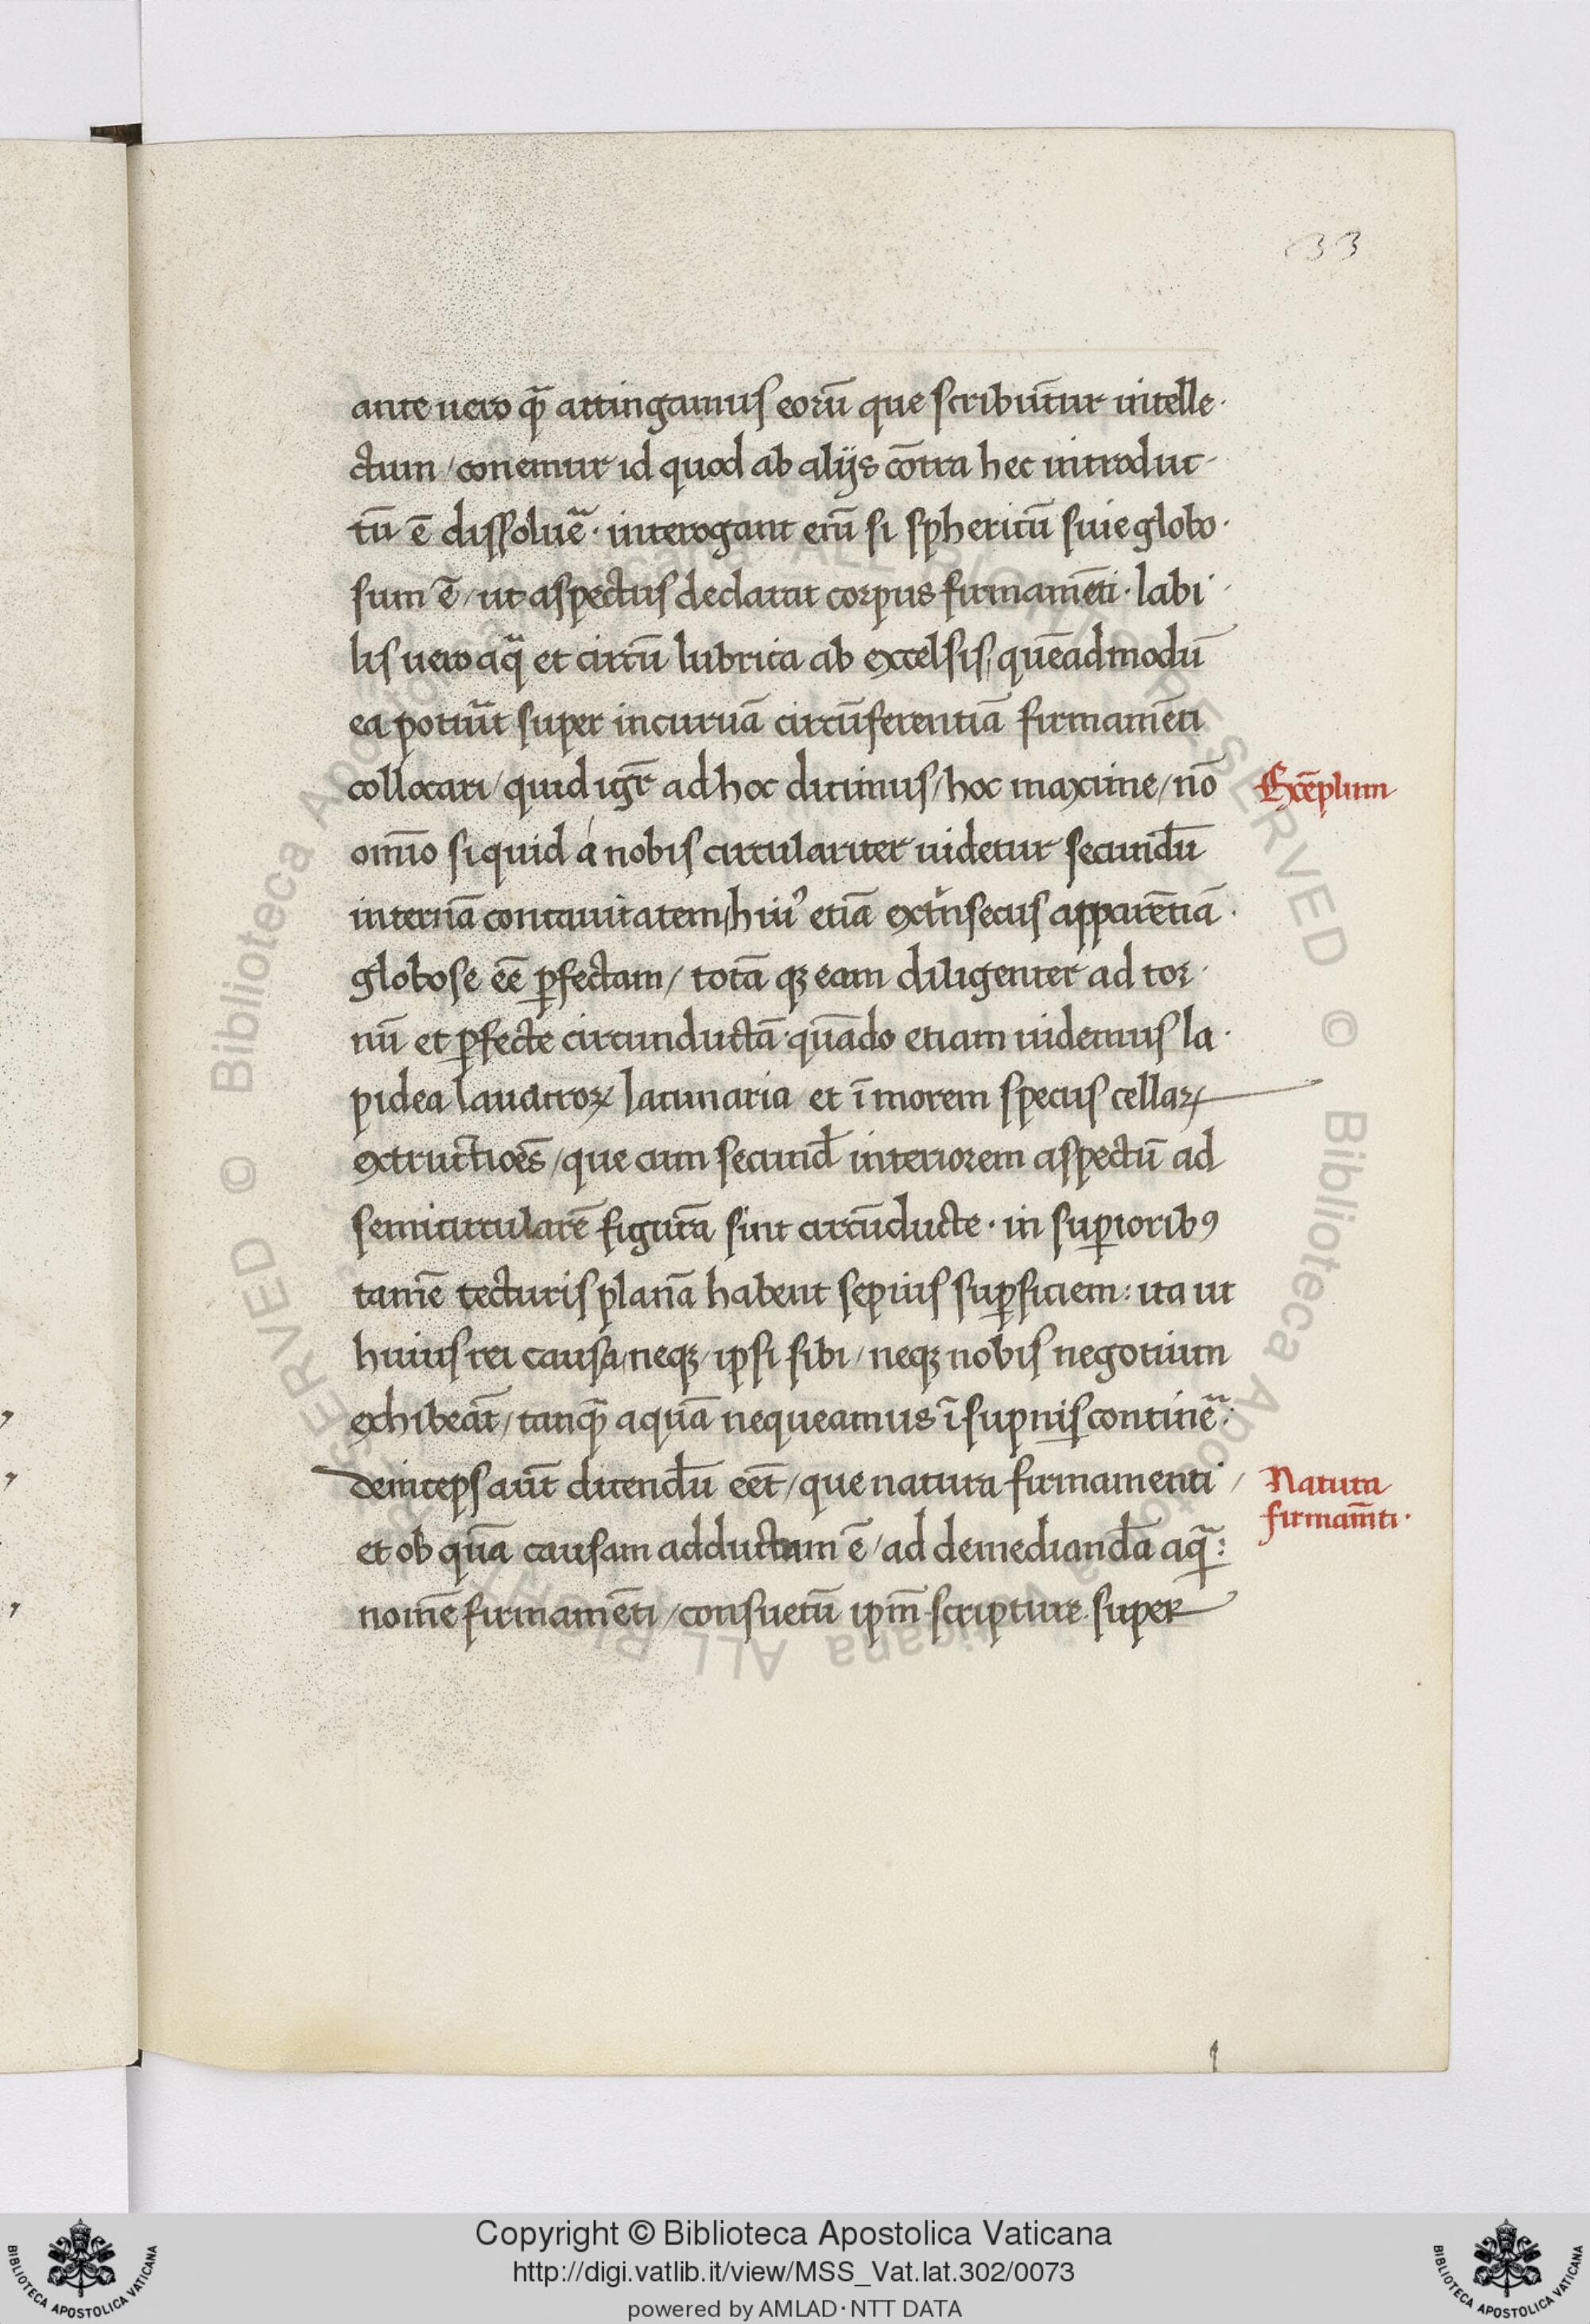 33
ante uero qᷓ attingamus eorū que scribūtur intelle·
ctum / conemur id quod ab alijs cōtra hec introduc-
tū ē dissoluēᷓ· interogant enī si sphericū siue globo·
sum ē / ut aspectus declarat corpus firmamēti· labi·
lis uero aqᷓ et circū lubrica ab excelsis, quēadmodū
ea potūit super incuruā circūferentiā firmamēti
collocari / quid igr̄ ad hoc dicimus / hoc maxime / nō
Exēplum
omīo si quid a nobis circulariter uidetur secundū
internā concauitatem, huiꝰ etiā ext'nsecus apparētiā·
globose eē ꝑfectam / totā qꝫ eam diligenter ad tor·
nū et ꝑfecte circunductā· quādo etiam uidemus la·
pidea lauacroꝝ lacunaria et ī morem specus cellaꝝ
extructiōes / que cum secund̄ interiorem aspectū ad
semicircularē figurā sint circūducte· in suꝑioribꝰ
tamē tecturis planā habent sepius suꝑficiem: ita ut
huius rei causa, neqꝫ / ipsi sibi / neqꝫ nobis negotium
exhibeāt / tanqᷓ aquā nequeamus ī supnis continēᷓ:
deinceps aūt dicendū eēt / que natura firmamenti /
Natura
firmam̄ti·
et ob quā causam adductam ē / ad demediandā aqᷓ:
nomē firmamēti / consuetū ipm̄ scripture super
Copyright © Biblioteca Apostolica Vaticana
http://digi.vatlib.it/view/MSS_Vat.lat.302/0073
powered by AMLAD·NTT DATA
BIBLIOTECA APOSTOLICA VATICANA
BIBLIOTECA APOSTOLICA VATICANA